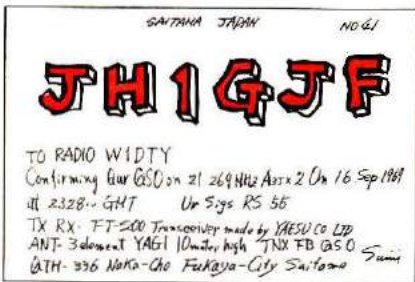 SAITAMA JAPAN NO 61
JH1GJF
TO RADIO W1DTY
Confirming Our QSO on 21 269 MHz A3J x 2 On 16 Sep 1969
at 2328.. GMT Ur Sigs RS 55
TX RX- FT-200 Transceiver made by YAESU CO LTD
ANT- 3element YAGI 10mater high TNX FB QSO
QTH- 336 Naka-Cho Fukaya-City Saitama